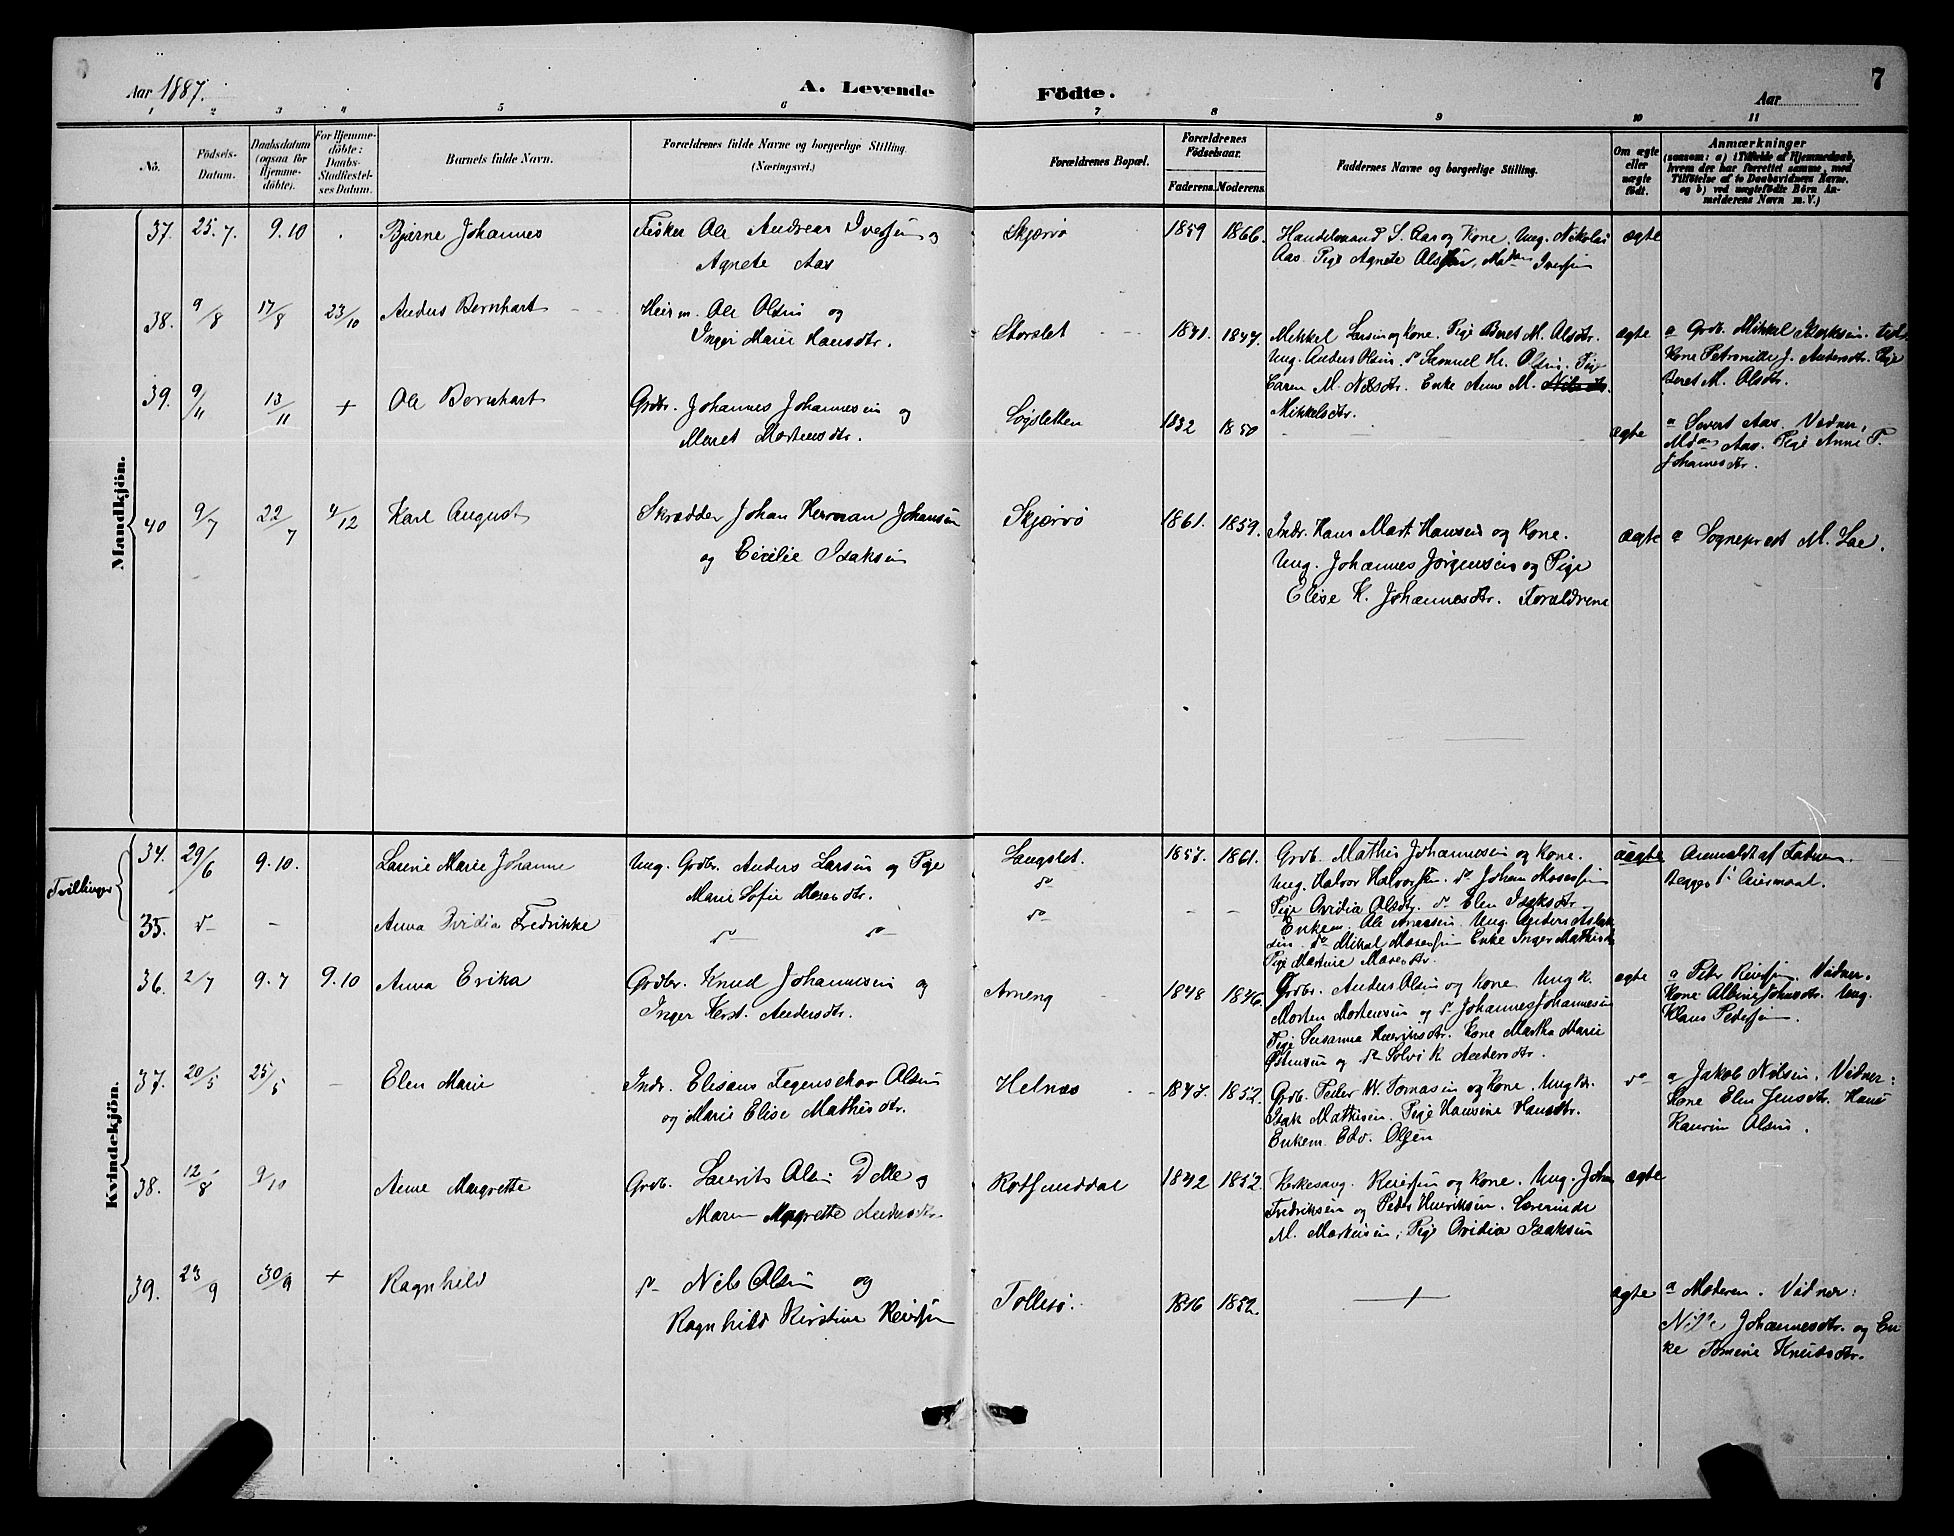 Aar 1887.
A. Levende Födte.
7
Aar
1 2 3 4 5 6 7 8 9 10 11
No.
Födsels-
Datum.
Daabsdatum
(ogsaa for
Hjemme-
döbte).
For Hjemme-
döbte:
Daabs-
Stadfæstel-
ses Datum.
Barnets fulde Navn.
Forældrenes fulde Navne og borgerlige Stilling.
(Næringsvei.)
Forældrenes Bopæl.
Forældrenes
Födselsaar.
Faderens. Moderens.
Faddernes Navne og borgerlige Stilling.
Om ægte
eller
uægte
födt.
Anmærkninger
(saasom: a) i Tilfælde af Hjemmedaab,
hvem der har forrettet samme, med
Tilföielse af to Daabsvidners Navne,
og b) ved uægtefödte Börn An-
melderens Navn m. V.)
Mandkjön.
37. 25.7. 9.10 . Bjarne Johannes
Fisker Ole Andreas Iversen og
Agnete Aas
Skjærvø 1859 1866.
Handelsmand S. Aas og Kone. Ung. Nikolai
Aas. Pige Agnete Olsen, Iversen
ægte
38. 9/8 17/8 23/10 Anders Bernhart
Ole Olsen og
Inger Marie Hansdtr.
Storslet 1841. 1847.
Mikkel Larsen og Kone. Pige Beret M. Olsdtr.
Ung. Anders Olsen. do Samuel Hr. Olsen. Pige
Caren M. Nilsdtr. Enke Anne M. Nilsdtr.
Mikkelsdtr.
ægte
a Grdb. Mikkel Isaksen.
Kone Petronille J. Andersdtr. Pige
Beret M. Olsdtr.
39. 9/11 13/11 + Ole Bernhart
Grdbr. Johannes Johannesen og
Maret Mortensdtr.
Sogsletten 1832 1850
ægte
a Sivert Aas. Vidner,
Aas. Pige Anne P.
Johannesdtr.
40 9/7 22/7 4/12 Karl August
Skrædder Johan Herman Johansen
og Cecilie Isaksen
Skjærvø 1861. 1859.
Indr. Hans Mart. Hansen og Kone.
Ung. Johannes Jørgensen og Pige
Elise K. Johannesdtr. Forældrene
ægte a Sogneprest M. Lae.
Kvindekjön.
Tvillinger
34. 29/6 9.10. Larine Marie Johanne
Ung. Grdbr. Anders Larsen og Pige
Marie Sofie Mosesdtr.
Langslet. do 1857. 1861.
Grdb. Mathis Johannesen og Kone.
Ung. Halvor Halvorsen. do Johan Mosessen
Pige Ovidia Olsdtr. do Elen Isaksdtr.
uægte Anmeldt af Faderen.
Begges 1ste Leiermaal.
35. do - Anna Ovidia Fredrikke
do do do - -
Enkem. Ole Arnesen. Ung. Anders Aslak
sen. do Mikal Mosessen Enke Inger Mathisd.
Pige Martine Mosesdtr.
36. 2/7 9.7 9.10 Anna Erika
Grdbr. Knud Johannesen og
Inger Kerst. Andersdtr.
Arneng 1848 1846.
Grdbr. Anders Olsen og Kone. Ung K.
Morten Mortensen og do Johannes Johannesen
Pige Susanna Henriksdtr. Kone Martha Marie
Østensen og do Solvi K. Andersdtr.
ægte
a Peter Reiersen. Vidner.
Kone Albine Johnsdtr. Ung.
Klaus Pedersen.
37. 20/5 25/5 - Elen Marie
Indr. Elisæus Fegenskov Olsen
og Marie Elise Mathisdtr.
Helnæs 1847. 1852.
Grdb. Peder W. Tomasen og Kone. Ung Dr.
Isak Mathisen. Pige Hansine Hansdtr.
Enkem. Edv. Olsen
do
a Jakob Nilsen. Vidner:
Kone Elen Jensdtr. Hans
Kaurin Olsen.
38. 12/8 9/10 Anne Margrette
Grdb. Laurits Olsen Delle og
Maren Margrette Andersdtr.
Rotsunddal 1842 1852.
Kirkesang. Reiersen og Kone. Ung. Johan
Fredriksen og Peder Henriksen. Lærerinde
M. Mortensen, Pige Ovidia Isaksen
ægte
39. 23/9 30/9 + Ragnhild
do Nils Olsen og
Ragnhild Kirstine Reiersen
Follesø. 1846 1852.
ægte
a Moderen. Vidner:
Johannesdtr. og En
ke Tomine Knudsdtr.